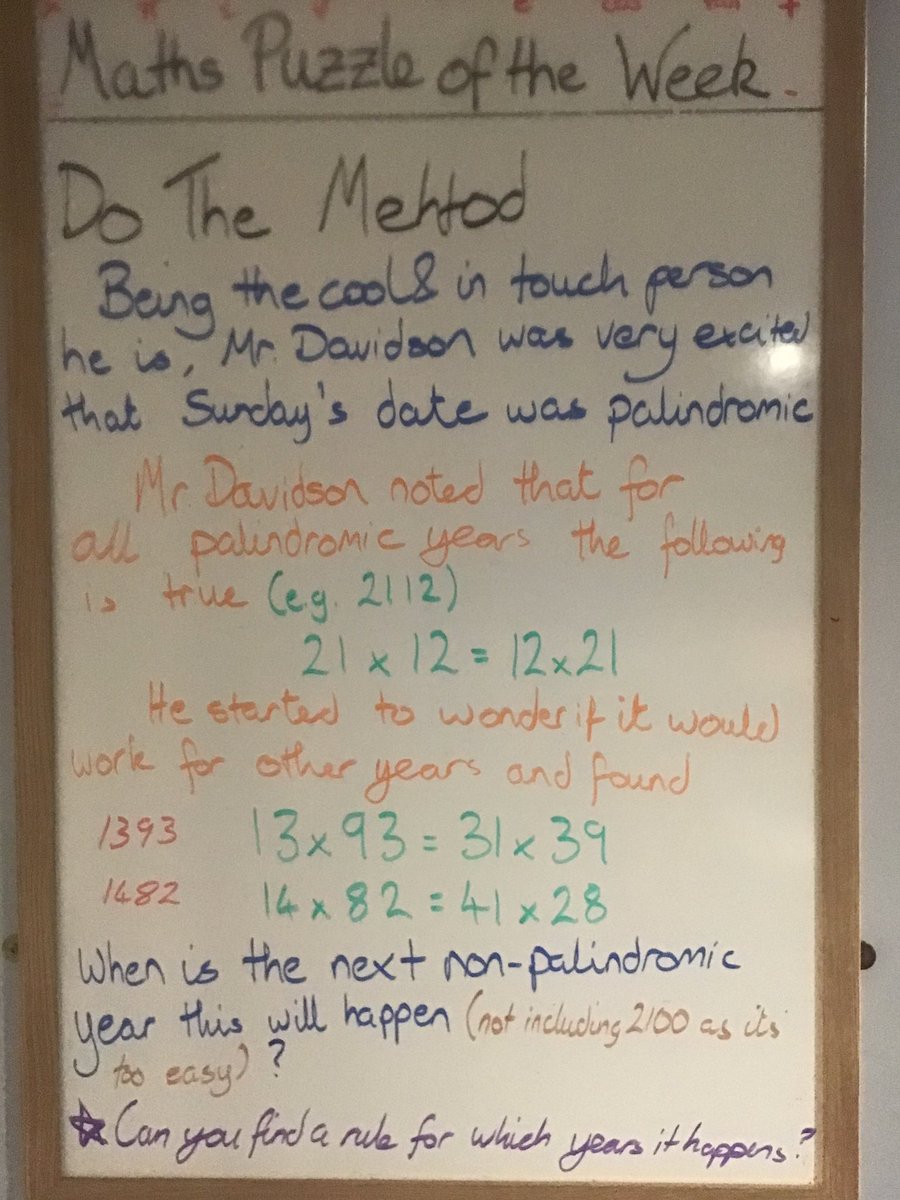 Maths Puzzle of the Week.
Do The Mehtod
Being the cool & in touch person
he is, Mr. Davidson was very excited
that Sunday's date was palindromic
Mr Davidson noted that for
all palindromic years the following
is true (e.g. 2112)
21 x 12 = 12 x 21
He started to wonder if it would
work for other years and found
1393 13 x 93 = 31 x 39
1482 14 x 82 = 41 x 28
When is the next non-palindromic
year this will happen (not including 2100 as its
too easy)?
☆ Can you find a rule for which years it happens?